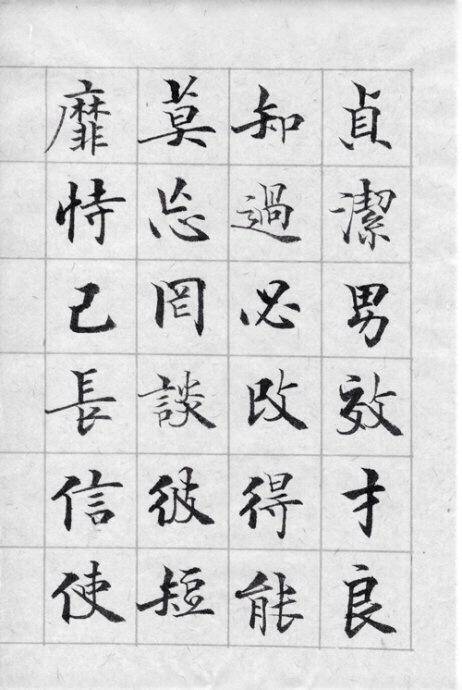 貞潔男效才良
知過必改得能
莫忘罔談彼短
靡恃己長信使